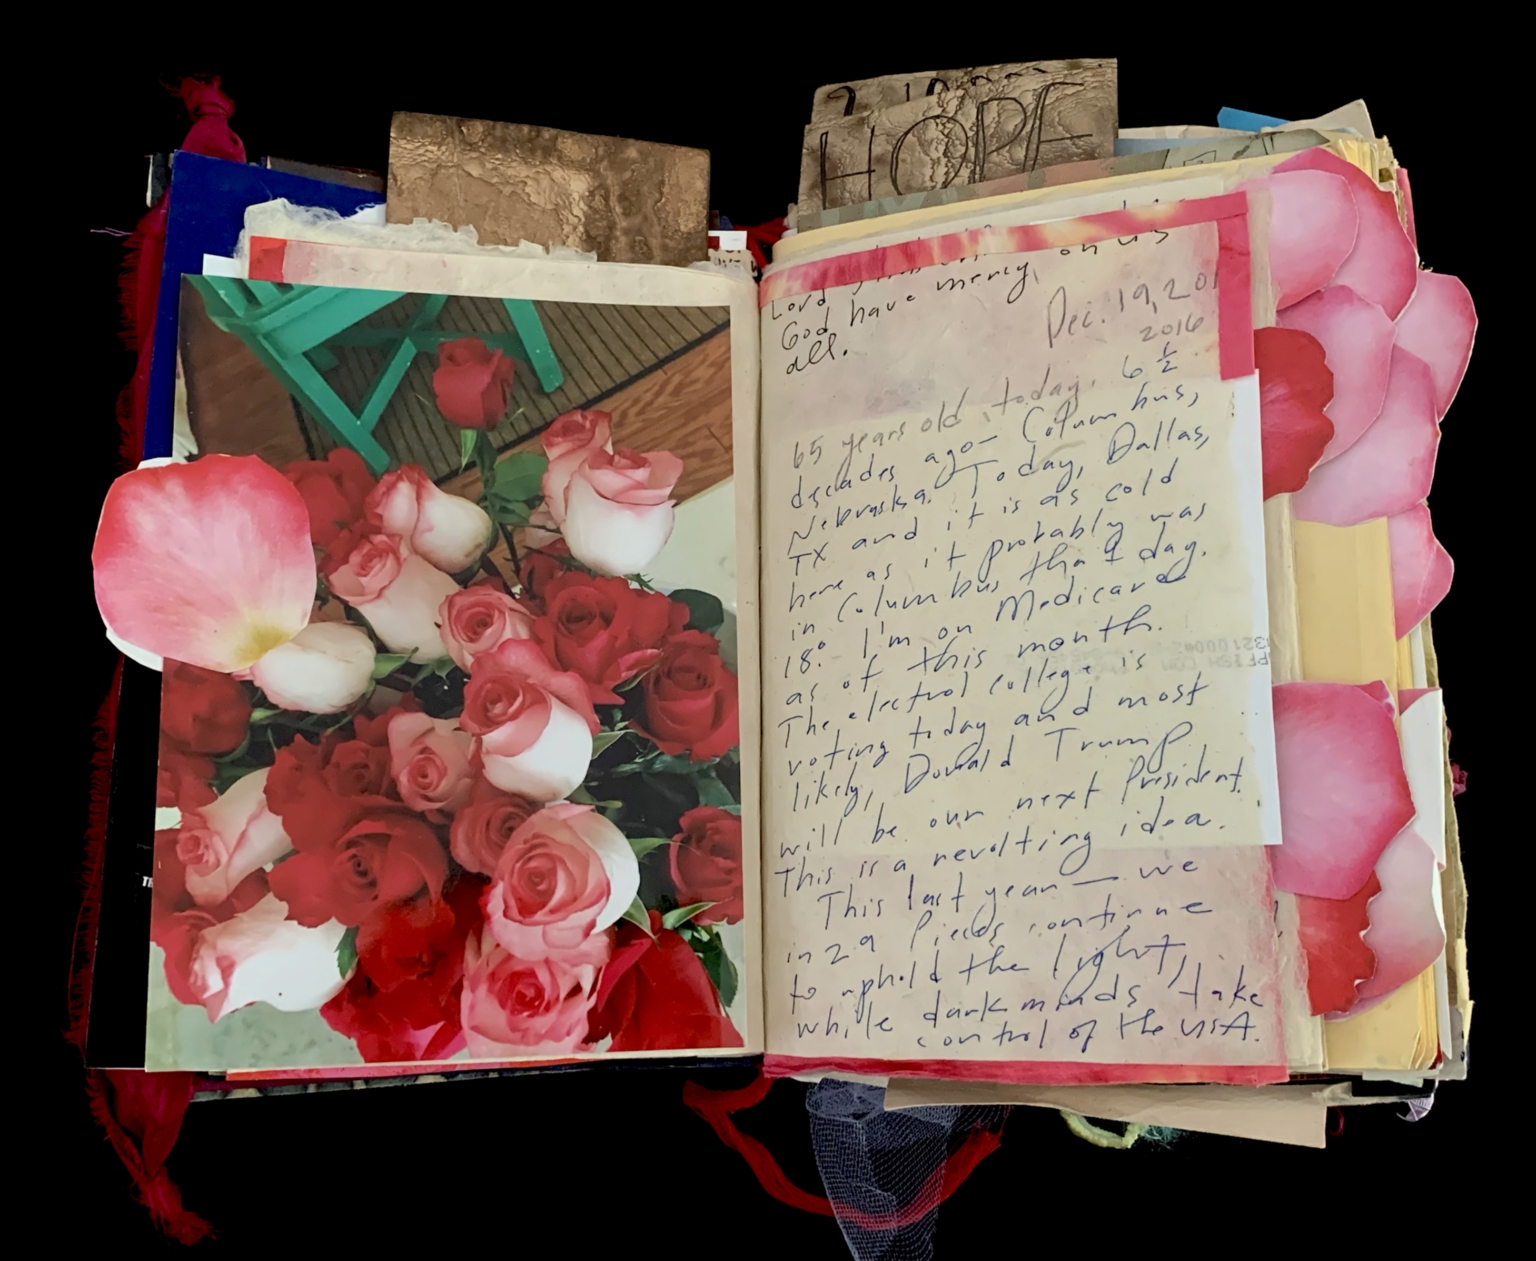 HOPE
Lord
God have mercy on us
all.
Dec. 19, 201
2016
65 years old today. 6 1/2
decades ago — Columbus,
Nebraska. Today, Dallas,
TX and it is as cold
here as it probably was
in Columbus that day.
18° I'm on Medicare
as of this month.
The electrol college is
voting today and most
likely, Donald Trump
will be our next President.
This is a revolting idea.
This last year — we
in 29 Pieces continue
to uphold the light,
while dark minds take
control of the USA.